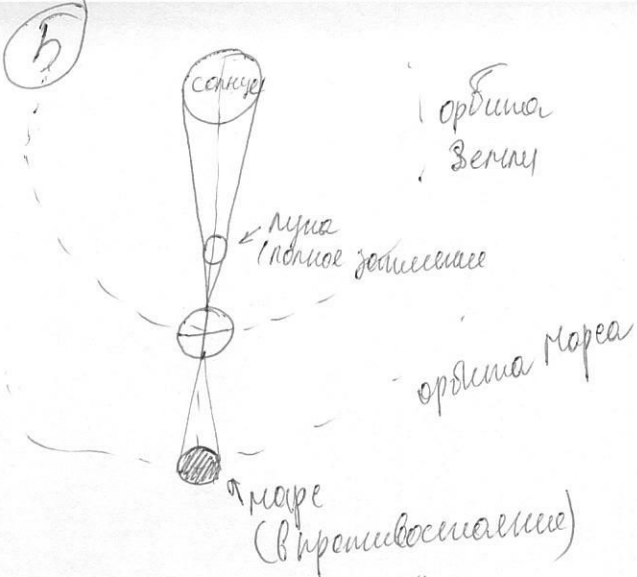 5
Солнце
орбита
Земли
Луна
(полное затмение
орбита Марса
Марс
(в противостояние)